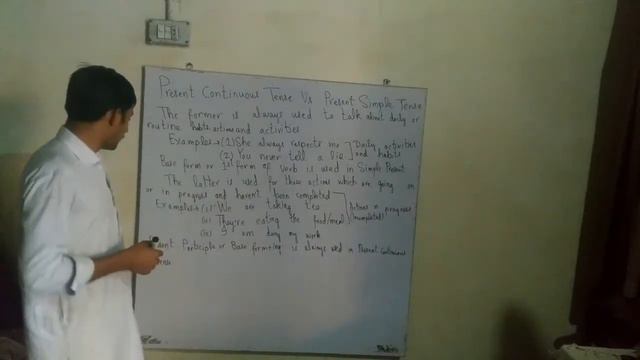 Present Continuous Tense Vs Present Simple Tense
The former is always used to talk about daily or
routine habits actions and activities
Examples→(1) She always respects me ] Daily activities
(2) You never tell a lie ] and habits
Base form or 1st form of verb is used in Simple Present
The latter is used for those actions which are going on
or in progress and haven't been completed
Examples→(i) We are taking tea ] Actions in progress
(ii) They're eating the food/meal (incompleted)
(iii) I am doing my work
Present Participle or Base form+ing is always used in Present Continuous
Tense